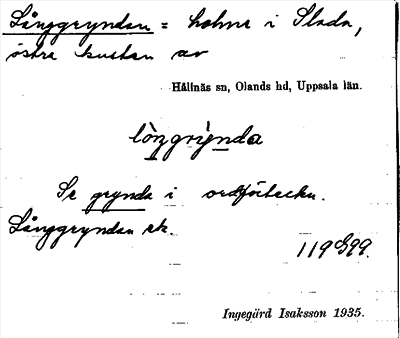 Långgryndan = holme i Slada,
östra kusten av
Hållnäs sn, Olands hd, Uppsala län.
lòŋgrỳnda
Se grynda i ordförteckn.
Långgryndan ek.
119 G99.
Ingegärd Isaksson 1935.